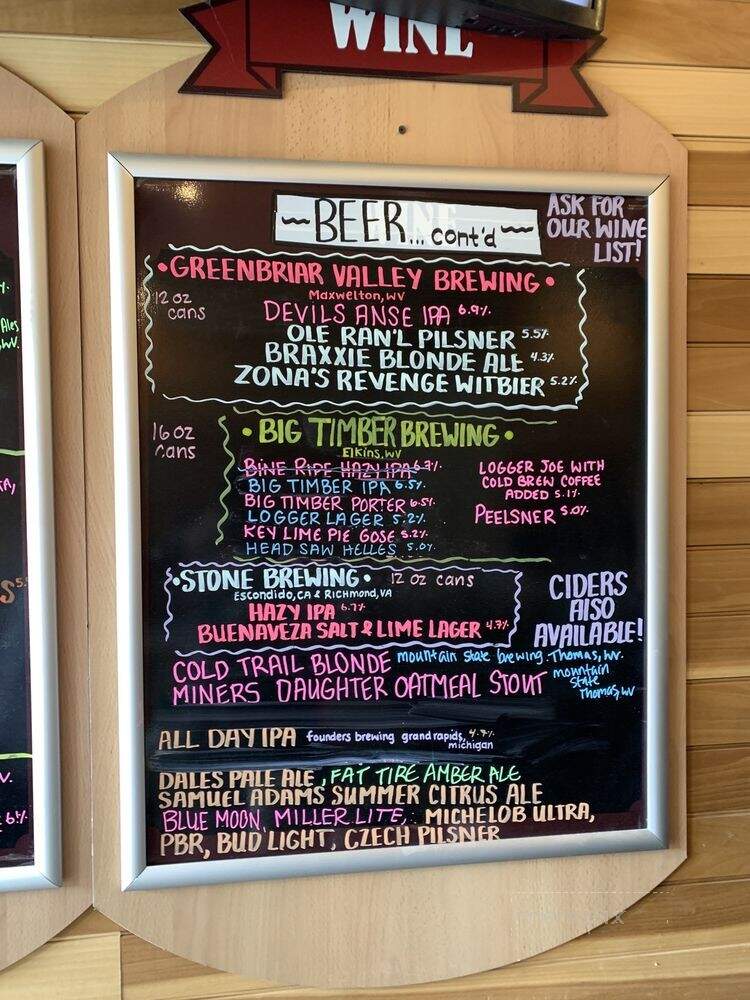 WINE
~BEER... cont'd~
ASK FOR
OUR WINE
LIST!
• GREENBRIAR VALLEY BREWING •
Maxwelton, WV
12 oz
cans
DEVILS ANSE IPA 6.9%
OLE RAN'L PILSNER 5.5%
BRAXXIE BLONDE ALE 4.3%
ZONA'S REVENGE WITBIER 5.2%
16 oz
cans
• BIG TIMBER BREWING •
Elkins, WV
BINE RIPE HAZY IPA 6.7%
BIG TIMBER IPA 6.5%
BIG TIMBER PORTER 6.5%
LOGGER LAGER 5.2%
KEY LIME PIE GOSE 5.2%
HEAD SAW HELLES 5.0%
LOGGER JOE WITH
COLD BREW COFFEE
ADDED 5.1%
PEELSNER 5.0%
• STONE BREWING • 12 oz cans
Escondido, CA & Richmond, VA
HAZY IPA 6.7%
BUENAVEZA SALT & LIME LAGER 4.7%
CIDERS
AlSO
AVAILABLE!
COLD TRAIL BLONDE mountain state brewing. Thomas, WV.
MINERS DAUGHTER OATMEAL STOUT mountain
state
Thomas, WV
ALL DAY IPA founders brewing grand rapids, 4.7%
michigan
DALES PALE ALE, FAT TIRE AMBER ALE
SAMUEL ADAMS SUMMER CITRUS ALE
BLUE MOON, MILLER LITE, MICHELOB ULTRA,
PBR, BUD LIGHT, CZECH PILSNER
Ales
WV.
6%